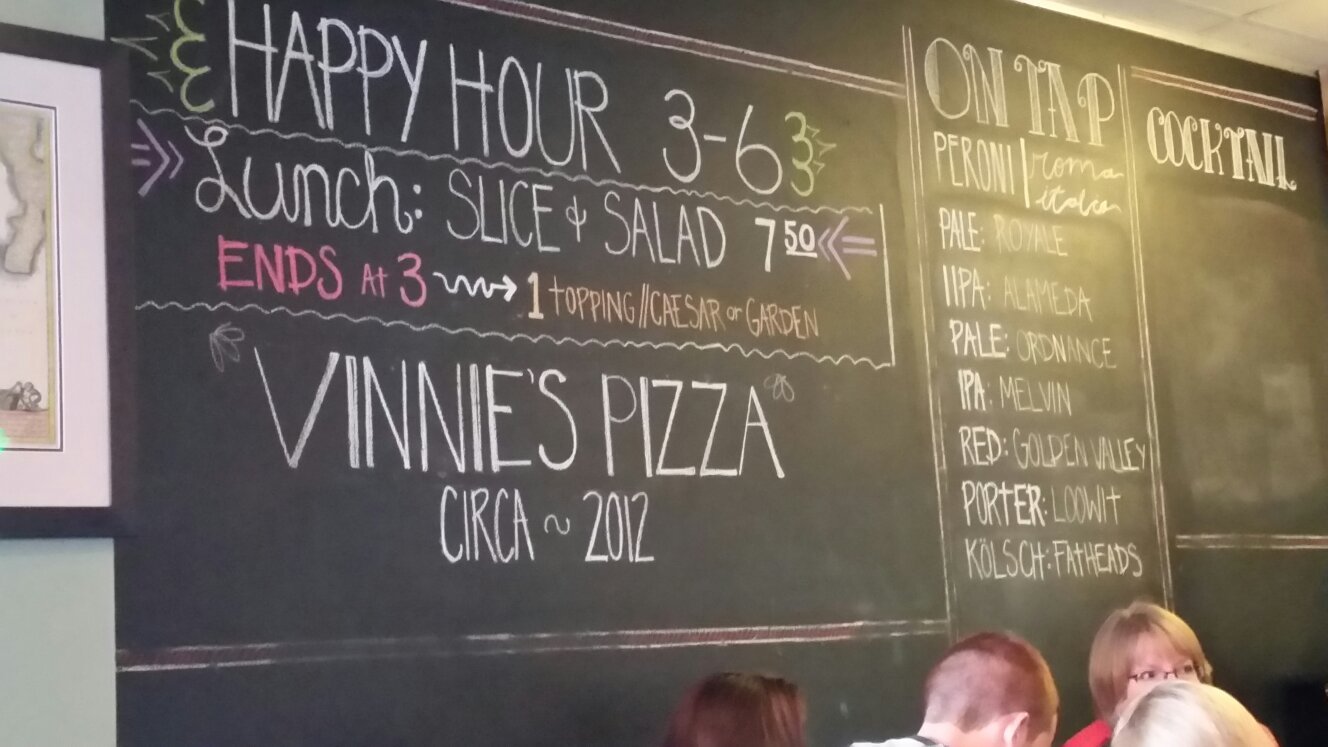 HAPPY HOUR 3-6
Lunch: SLICE & SALAD 7 50
ENDS At 3 1 tOPPING//CAESAR or GARDEN
VINNIE'S PIZZA
CIRCA ~ 2012
ON TAP
PERONI | roma
italia
PALE: ROYALE
IIPA: ALAMEDA
PALE: ORDNANCE
IPA: MELVIN
RED: GOLDEN VALLEY
PORTER: LOOWIt
KÖLSCH: FAtHEADS
COCKTAIL